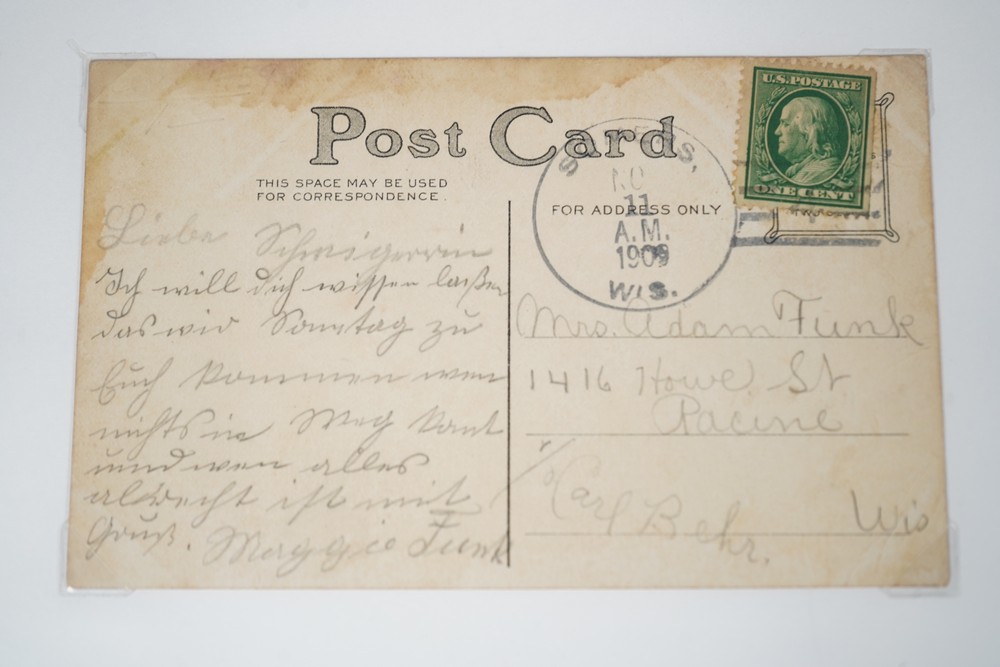 Post Card
THIS SPACE MAY BE USED
FOR CORRESPONDENCE.
FOR ADDRESS ONLY
U.S. POSTAGE
ONE CENT
NO
11
A.M.
1909
WIS.
Liebe Schwigerrin
Ich will dich wissen laßen
das wir Sonntag zu
Euch kommen wen
nichts in Weg komt
und wen alles
alrecht ist mit
Gruß. Maggie Funk
Mrs. Adam Funk
1416 Howe St
Racine
c/o Carl Behr.
Wis